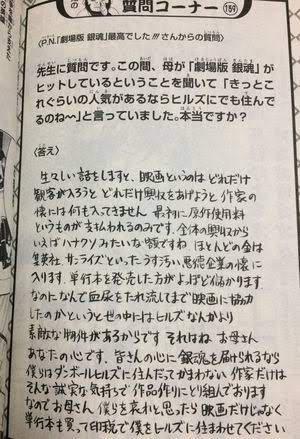 の 質問コーナー 159
〈P.N.「劇場版 銀魂」最高でした!!!さんからの質問〉
先生に質問です。この間、母が「劇場版 銀魂」が
ヒットしているということを聞いて「きっとこ
れぐらいの人気があるならヒルズにでも住んで
るのね〜」と言っていました。本当ですか?
〈答え〉
生々しい話をしますと、映画というのは どれだけ
観客が入ろうと どれだけ興収をあげようと 作家の
懐には何も入ってきません 最初に原作使用料
というものが支払われるのみです。全体の興収から
いえばハナクソみたいな額ですね。ほとんどの金は
集英社 サンライズといったうすぎたない悪徳企業の懐に
入ります。単行本を発売した方がよほど儲かります。
なのになんで血尿をたれ流してまで映画に協力
したのかというとゼの中にはヒルズなんかより
素敵な物件があるからです それはね お母さん
あなたの心です。皆さんの心に銀魂を届けられるなら
僕らはダンボールヒルズに住んだってかまわない 作家だけは
そんな誠実な気持ちで作品作りにとり組んでおります
なのでお母さん 僕らを哀れと思ったら映画だけじゃなく
単行本も買って印税で僕をヒルズに住まわせてください